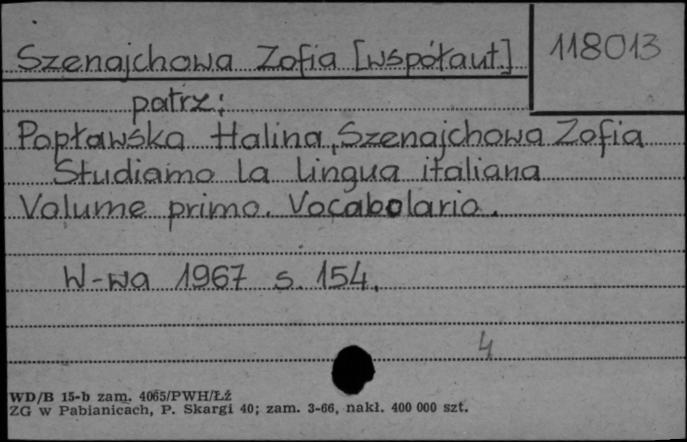 Szenajchowa Zofia [współaut.]
118013
patrz:
Popławska Halina, Szenajchowa Zofia
Studiamo la lingua italiana
Volume primo. Vocabolario.
W-wa 1967 s. 154.
4
WD/B 15-b zam. 4065/PWH/Łź
ZG w Pabianicach, P. Skargi 40; zam. 3-66, nakł. 400 000 szt.